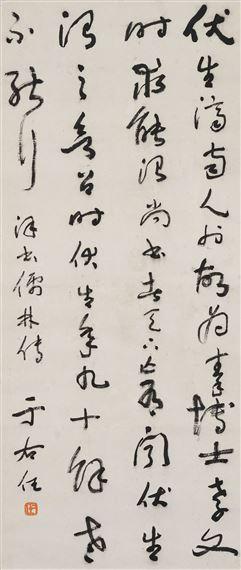 伏生濟南人也故為秦博士孝文
時求能治尚書者天下亡有聞伏生
治之欲召時伏生年九十餘老
不能行 漢書儒林傳 于右任